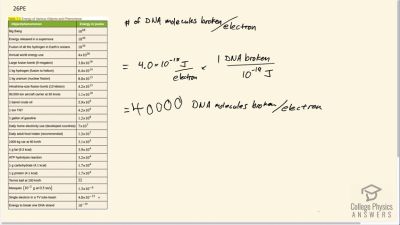 26PE
# of DNA molecules broken/electron
= 4.0 × 10⁻¹⁵ J/electron × 1 DNA broken/10⁻¹⁹ J
= 40000 DNA molecules broken/electron
Energy of Various Objects and Phenomena
Object/phenomenon Energy in joules
Big Bang 10⁶⁸
Energy released in a supernova 10⁴⁴
Fusion of all the hydrogen in Earth's oceans 10³⁴
Annual world energy use 4×10²⁰
Large fusion bomb (9 megaton) 3.8×10¹⁶
1 kg hydrogen (fusion to helium) 6.4×10¹⁴
1 kg uranium (nuclear fission) 8.0×10¹³
Hiroshima-size fission bomb (10 kiloton) 4.2×10¹³
90,000-ton aircraft carrier at 30 knots 1.1×10¹⁰
1 barrel crude oil 5.9×10⁹
1 ton TNT 4.2×10⁹
1 gallon of gasoline 1.2×10⁸
Daily home electricity use (developed countries) 7×10⁷
Daily adult food intake (recommended) 1.2×10⁷
1000-kg car at 90 km/h 3.1×10⁵
1 g fat (9.3 kcal) 3.9×10⁴
ATP hydrolysis reaction 3.2×10⁴
1 g carbohydrate (4.1 kcal) 1.7×10⁴
1 g protein (4.1 kcal) 1.7×10⁴
Tennis ball at 100 km/h 22
Mosquito (10⁻² g at 0.5 m/s) 1.3×10⁻⁶
Single electron in a TV tube beam 4.0×10⁻¹⁵
Energy to break one DNA strand 10⁻¹⁹
College Physics
ANSWERS